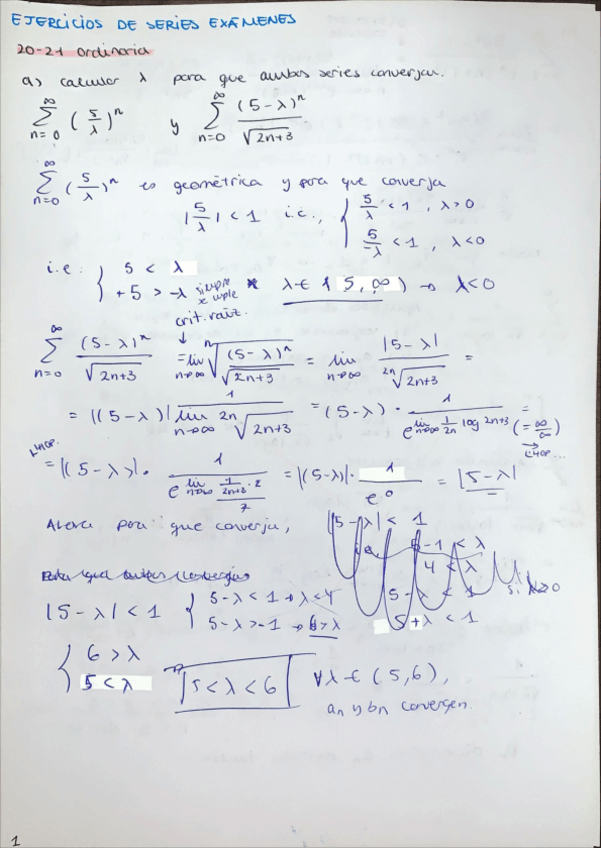 EJERCICIOS DE SERIES EXÁMENES
20-21 ordinaria
a) calcular λ para que ambas series converjan.
∞∑n=0 (5/λ)^n y ∞∑n=0 (5-λ)^n / √(2n+3)
∞∑n=0 (5/λ)^n es geométrica y para que converja
|5/λ| < 1 i.e., { 5/λ < 1 , λ>0
5/-λ < 1 , λ<0
i.e. { 5 < λ
+5 > -λ siempre se cumple * λ ∈ (5, ∞) → λ<0
crit. raiz.
∞∑n=0 (5-λ)^n / √(2n+3) = lim n→∞ ⁿ√((5-λ)^n / √(2n+3)) = lim n→∞ |5-λ| / ²ⁿ√(2n+3) =
= |(5-λ)| 1 / lim n→∞ ²ⁿ√(2n+3) = (5-λ) · 1 / e^(lim n→∞ 1/2n log 2n+3) = (=∞/∞)
L'HOP...
L'HOP.
= |(5-λ)| · 1 / e^(lim n→∞ (1/(2n+3) · 2)/2) = |(5-λ)| · 1/e^0 = |5-λ|
Ahora para que converja, |5-λ| < 1
5-1 < λ
4 < λ
5-λ < 1 si λ>0
5+λ < 1
|5-λ| < 1 { 5-λ < 1 → λ<4
5-λ > -1 → 6>λ
{ 6 > λ
5 < λ
5 < λ < 6 ∀λ ∈ (5,6),
an y bn convergen.
1